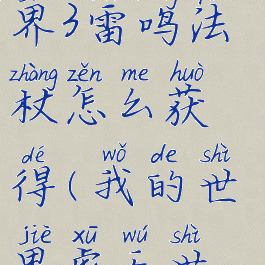 界3雷鸣法
zhàng zěn me huò
杖怎么获
dé wǒ de shì
得(我的世
jiè xū wú shì
界虚无世